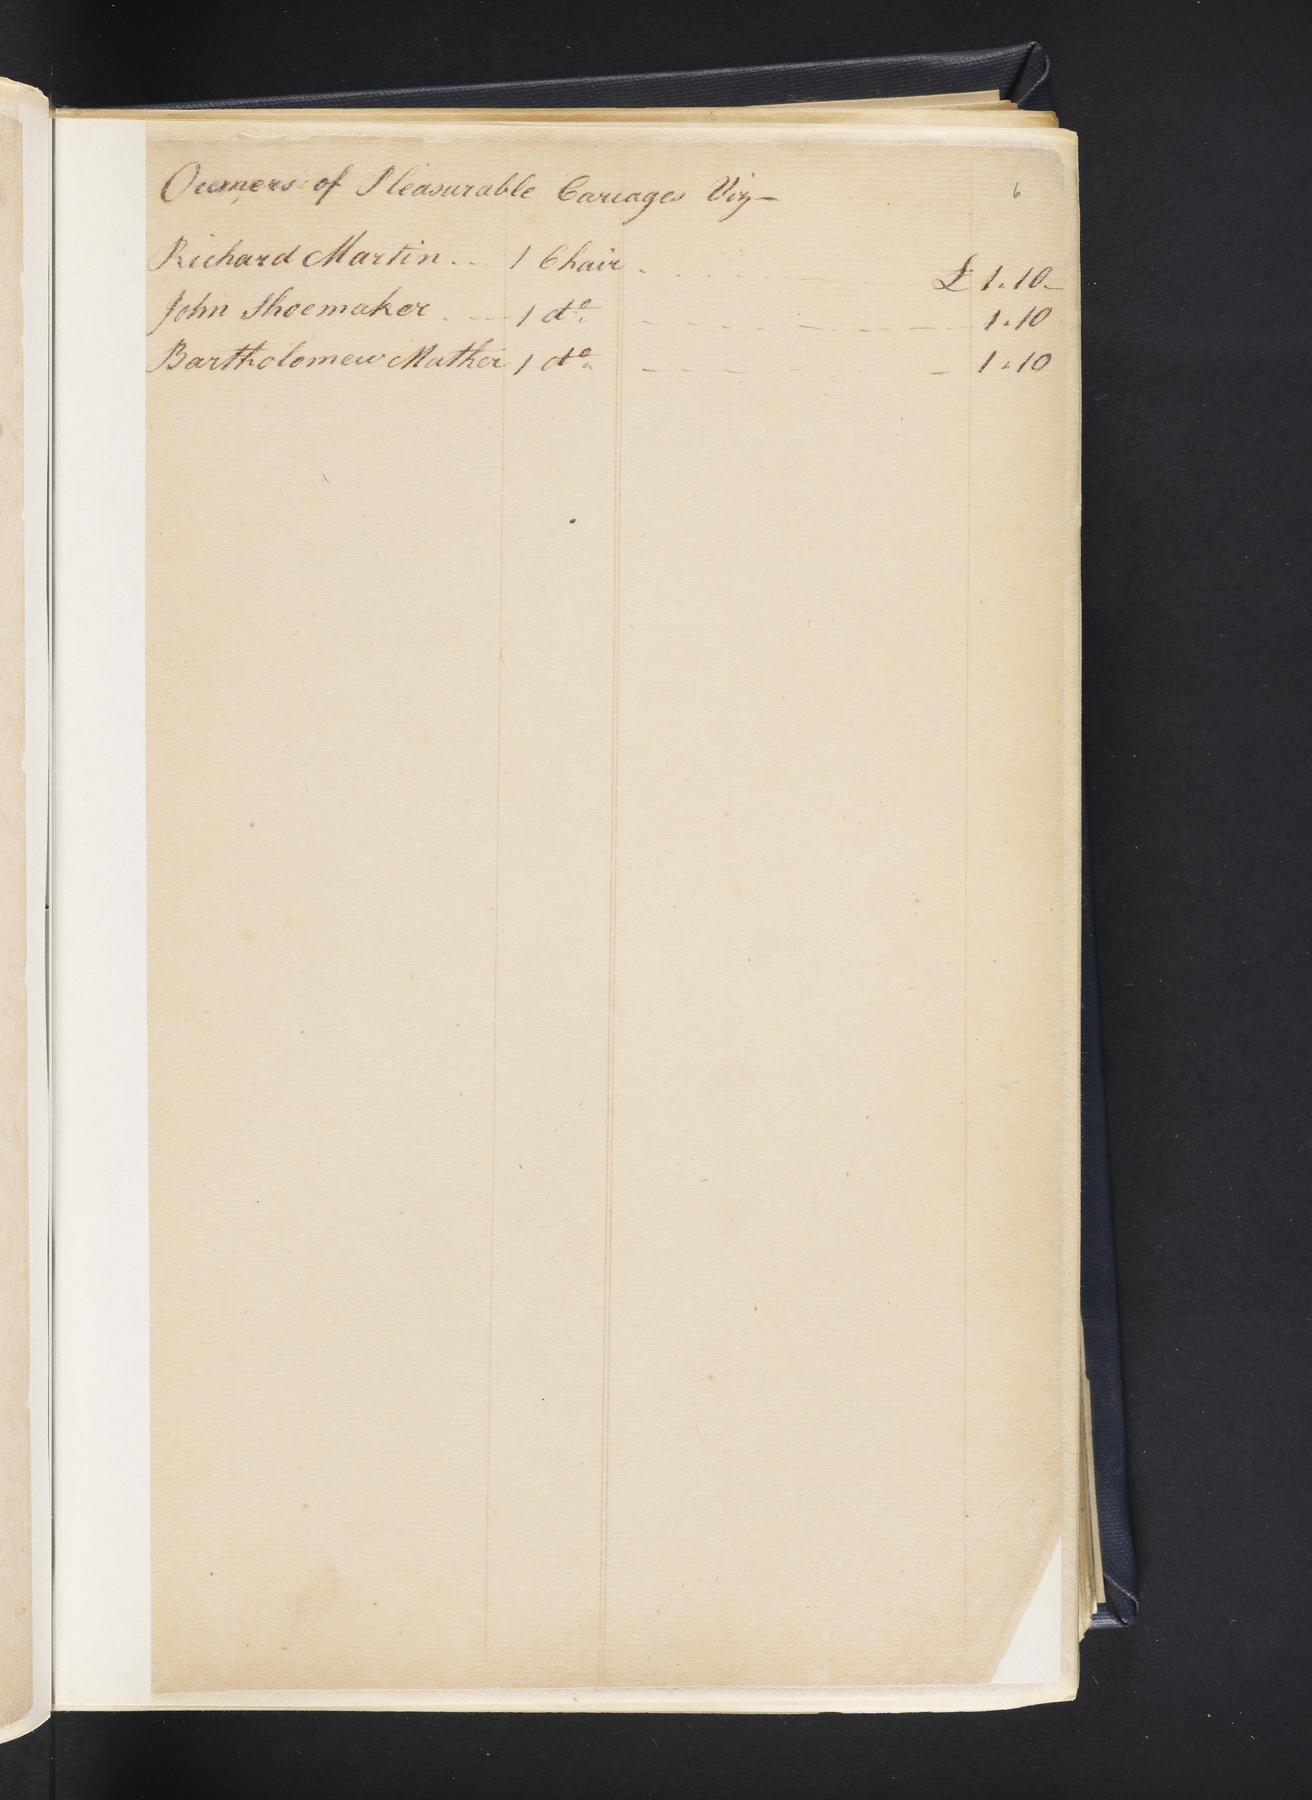 Owners of Pleasurable Cariages Viz — 6
Richard Martin .. 1 Chair . . . . . £ 1.10 -
John Shoemaker . - - 1 do. - - - - - 1.10
Bartholomew Mather 1 do. - - - - - 1.10